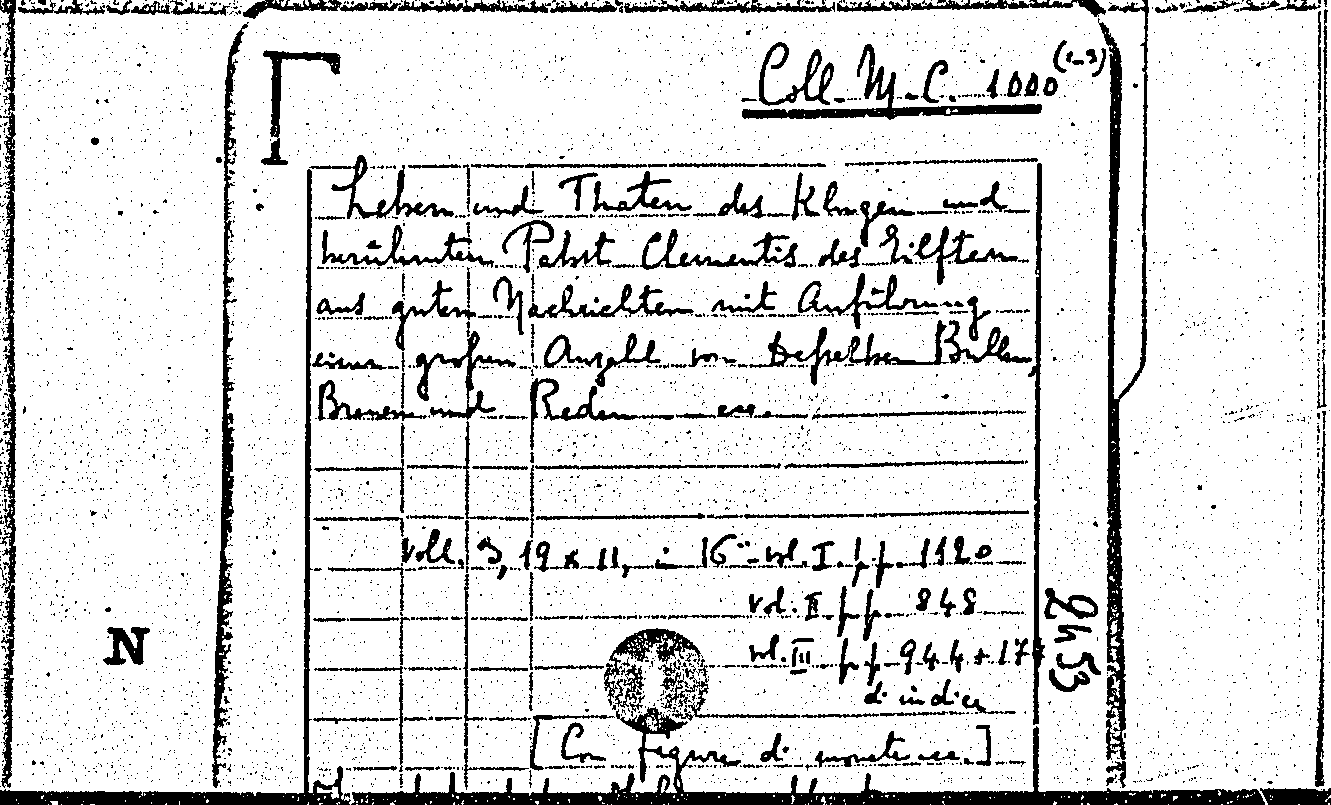 Γ
Coll. M.C. 1000 (1-3)
Leben und Thaten des Klugen und
berühmten Pabst Clementis des Eilften
aus guten Nachrichten mit Anführung
einer großen Anzahl von Desselben Bullen,
Breven und Reden ecc.
Voll. 3, 19 x 11, in 16° - vol. I. pp. 1120
vol. II pp. 848
vol. III. pp. 944 + 17
di indice
[Con figure di monete ecc.]
N
2453